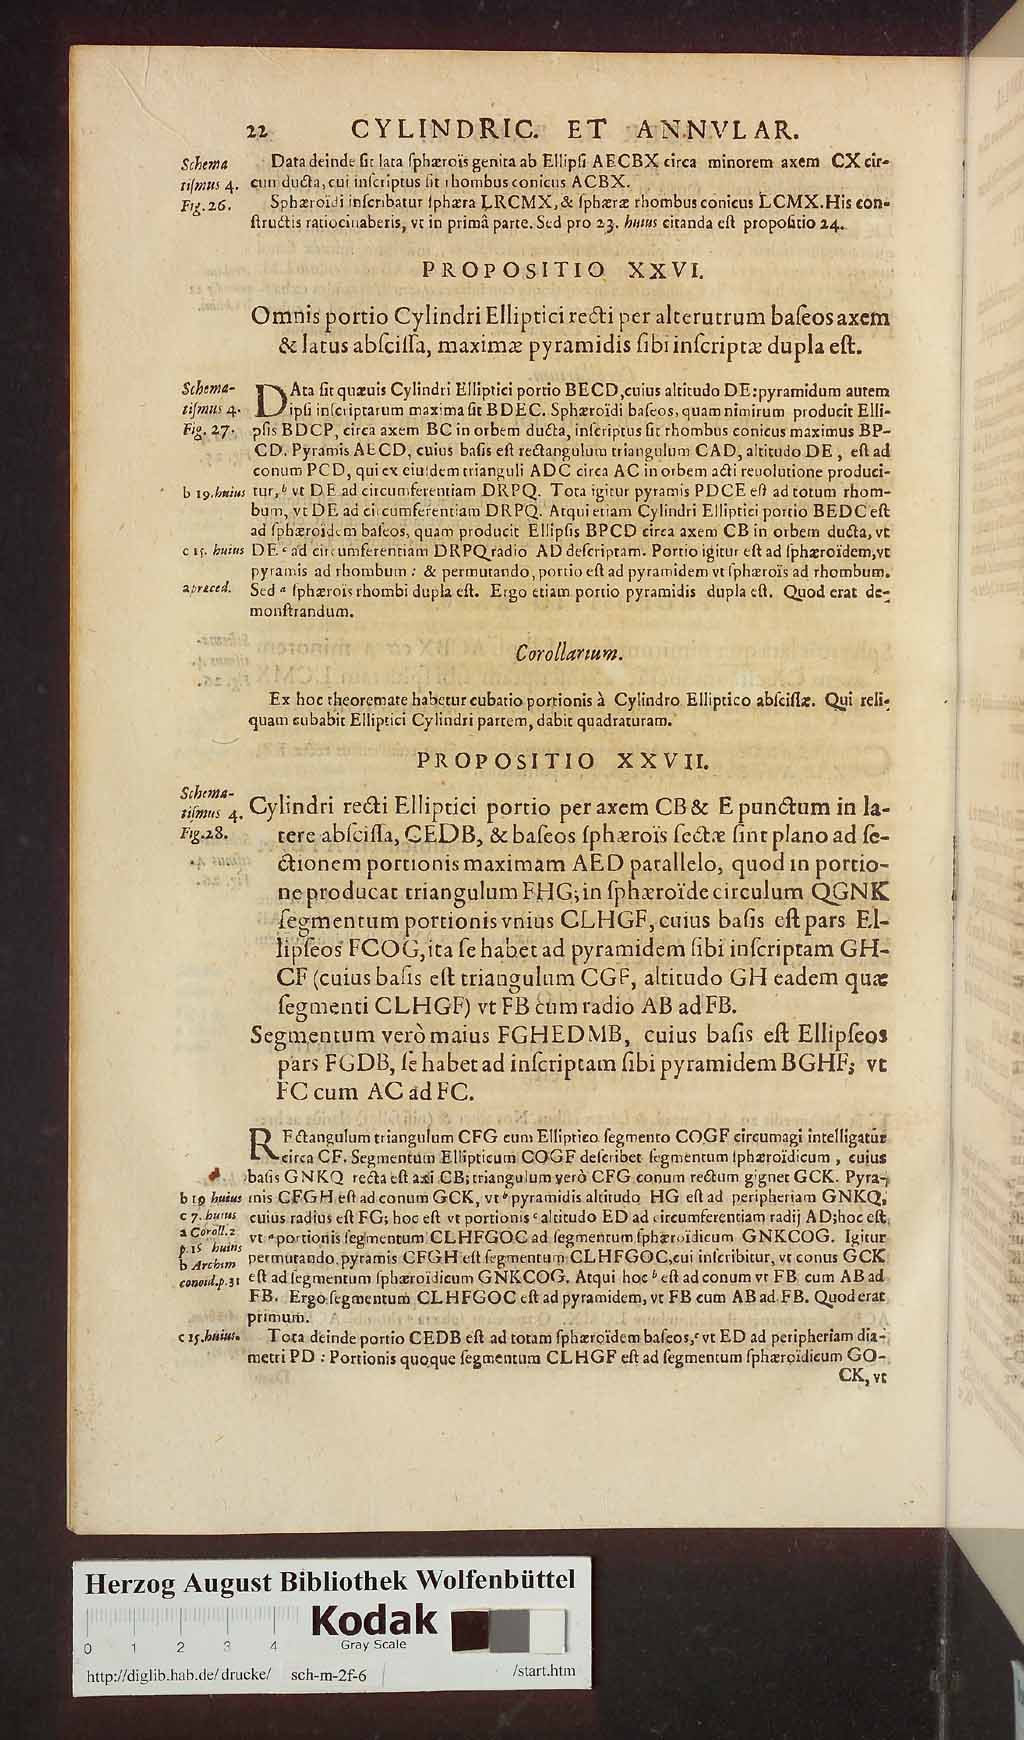 22 CYLINDRIC. ET ANNVLAR.
Schema
tiſmus 4.
Fig. 26.
Data deinde ſit lata ſphæroïs genita ab Ellipſi AECBX circa minorem axem CX cir-
cum ducta, cui inſcriptus ſit rhombus conicus ACBX.
Sphæroïdi inſcribatur ſphæra LRCMX, & ſphæræ rhombus conicus LCMX. His con-
ſtructis ratiocinaberis, vt in primâ parte. Sed pro 23. huius citanda eſt propoſitio 24.
PROPOSITIO XXVI.
Omnis portio Cylindri Elliptici recti per alterutrum baſeos axem
& latus abſciſſa, maximæ pyramidis ſibi inſcriptæ dupla eſt.
Schema-
tiſmus 4.
Fig. 27.
DAta ſit quæuis Cylindri Elliptici portio BECD, cuius altitudo DE: pyramidum autem
ipſi inſcriptarum maxima ſit BDEC. Sphæroïdi baſeos, quam nimirum producit Elli-
pſis BDCP, circa axem BC in orbem ducta, inſcriptus ſit rhombus conicus maximus BP-
CD. Pyramis AECD, cuius baſis eſt rectangulum triangulum CAD, altitudo DE, eſt ad
conum PCD, qui ex eiuſdem trianguli ADC circa AC in orbem acti reuolutione produci-
b 19. huius tur, b vt DE ad circumferentiam DRPQ. Tota igitur pyramis PDCE eſt ad totum rhom-
bum, vt DE ad circumferentiam DRPQ. Atqui etiam Cylindri Elliptici portio BEDC eſt
ad ſphæroïdem baſeos, quam producit Ellipſis BPCD circa axem CB in orbem ducta, vt
c 15. huius DE c ad circumferentiam DRPQ radio AD deſcriptam. Portio igitur eſt ad ſphæroïdem, vt
pyramis ad rhombum: & permutando, portio eſt ad pyramidem vt ſphæroïs ad rhombum.
a præced. Sed a ſphæroïs rhombi dupla eſt. Ergo etiam portio pyramidis dupla eſt. Quod erat de-
monſtrandum.
Corollarium.
Ex hoc theoremate habetur cubatio portionis à Cylindro Elliptico abſciſſæ. Qui reli-
quam cubabit Elliptici Cylindri partem, dabit quadraturam.
PROPOSITIO XXVII.
Schema-
tiſmus 4.
Fig. 28.
Cylindri recti Elliptici portio per axem CB & E punctum in la-
tere abſciſſa, CEDB, & baſeos ſphæroïs ſectæ ſint plano ad ſe-
ctionem portionis maximam AED parallelo, quod in portio-
ne producat triangulum FHG; in ſphæroïde circulum QGNK
ſegmentum portionis vnius CLHGF, cuius baſis eſt pars El-
lipſeos FCOG, ita ſe habet ad pyramidem ſibi inſcriptam GH-
CF (cuius baſis eſt triangulum CGF, altitudo GH eadem quæ
ſegmenti CLHGF) vt FB cum radio AB ad FB.
Segmentum verò maius FGHEDMB, cuius baſis eſt Ellipſeos
pars FGDB, ſe habet ad inſcriptam ſibi pyramidem BGHF; vt
FC cum AC ad FC.
REctangulum triangulum CFG cum Elliptico ſegmento COGF circumagi intelligatur
circa CF. Segmentum Ellipticum COGF deſcribet ſegmentum ſphæroïdicum, cuius
baſis GNKQ recta eſt axi CB; triangulum verò CFG conum rectum gignet GCK. Pyra-
b 19 huius mis CFGH eſt ad conum GCK, vt b pyramidis altitudo HG eſt ad peripheriam GNKQ,
c 7. huius cuius radius eſt FG; hoc eſt vt portionis c altitudo ED ad circumferentiam radij AD; hoc eſt,
a Coroll. 2 vt a portionis ſegmentum CLHFGOC ad ſegmentum ſphæroïdicum GNKCOG. Igitur
p. 15 huius permutando, pyramis CFGH eſt ſegmentum CLHFGOC, cui inſcribitur, vt conus GCK
b Archim
conoid. p. 31 eſt ad ſegmentum ſphæroïdicum GNKCOG. Atqui hoc b eſt ad conum vt FB cum AB ad
FB. Ergo ſegmentum CLHFGOC eſt ad pyramidem, vt FB cum AB ad FB. Quod erat
primum.
c 15. huius. Tota deinde portio CEDB eſt ad totam ſphæroïdem baſeos, c vt ED ad peripheriam dia-
metri PD: Portionis quoque ſegmentum CLHGF eſt ad ſegmentum ſphæroïdicum GO-
CK, vt
Herzog August Bibliothek Wolfenbüttel
Kodak
Gray Scale
0 1 2 3 4
http://diglib.hab.de/drucke/ sch-m-2f-6 /start.htm